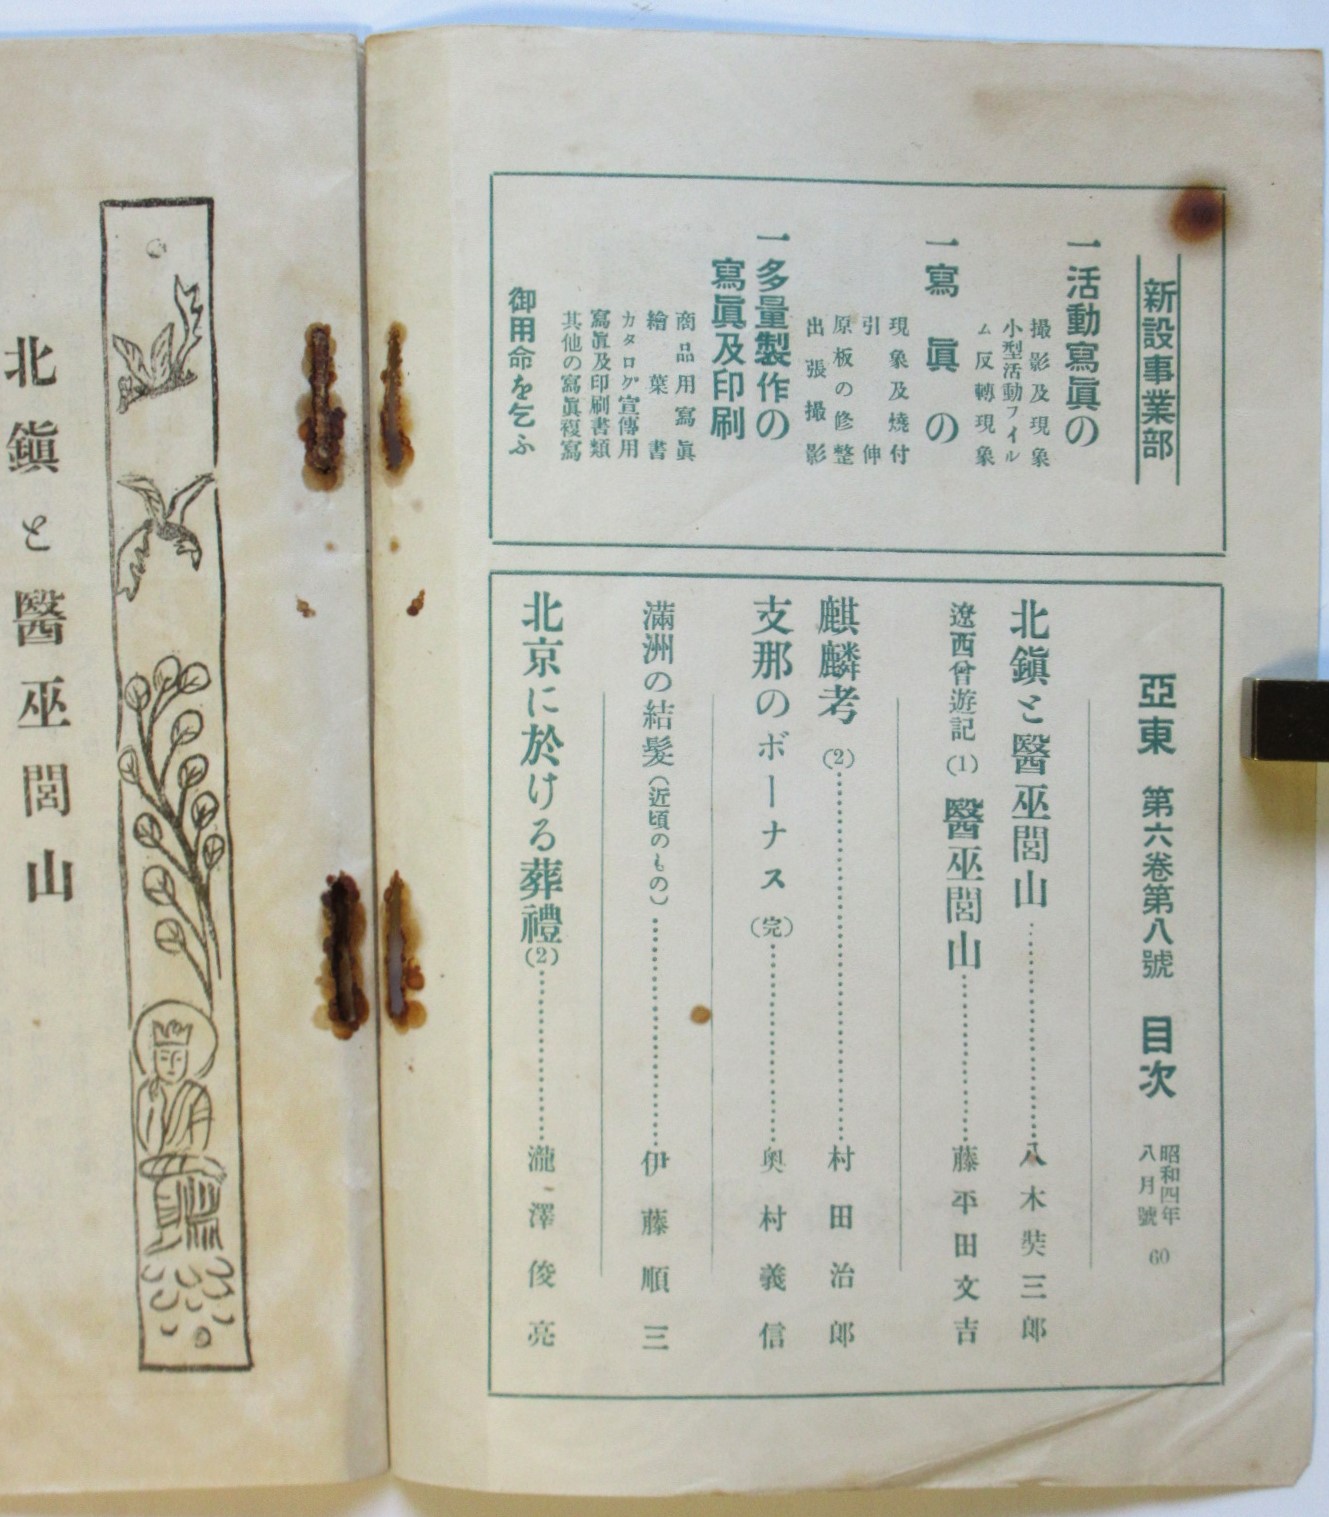 新設事業部
一活動寫眞の
撮影及現象
小型活動フイル
ム反轉現象
一寫眞の
現象及燒付
引伸
原板の修整
出張撮影
一多量製作の
寫眞及印刷
商品用寫眞
繪葉書
カタログ宣傳用
寫眞及印刷書類
其他の寫眞複寫
御用命を乞ふ
亞東 第六卷第八號 目次 昭和四年
八月號 60
北鎭と醫巫閭山……八木奘三郎
遼西曾遊記(1) 醫巫閭山……藤平田文吉
麒麟考(2)……村田治郎
支那のボーナス(完)……奥村義信
滿洲の結髪(近頃のもの)……伊藤順三
北京に於ける葬禮(2)……瀧澤俊亮
北鎭と醫巫閭山